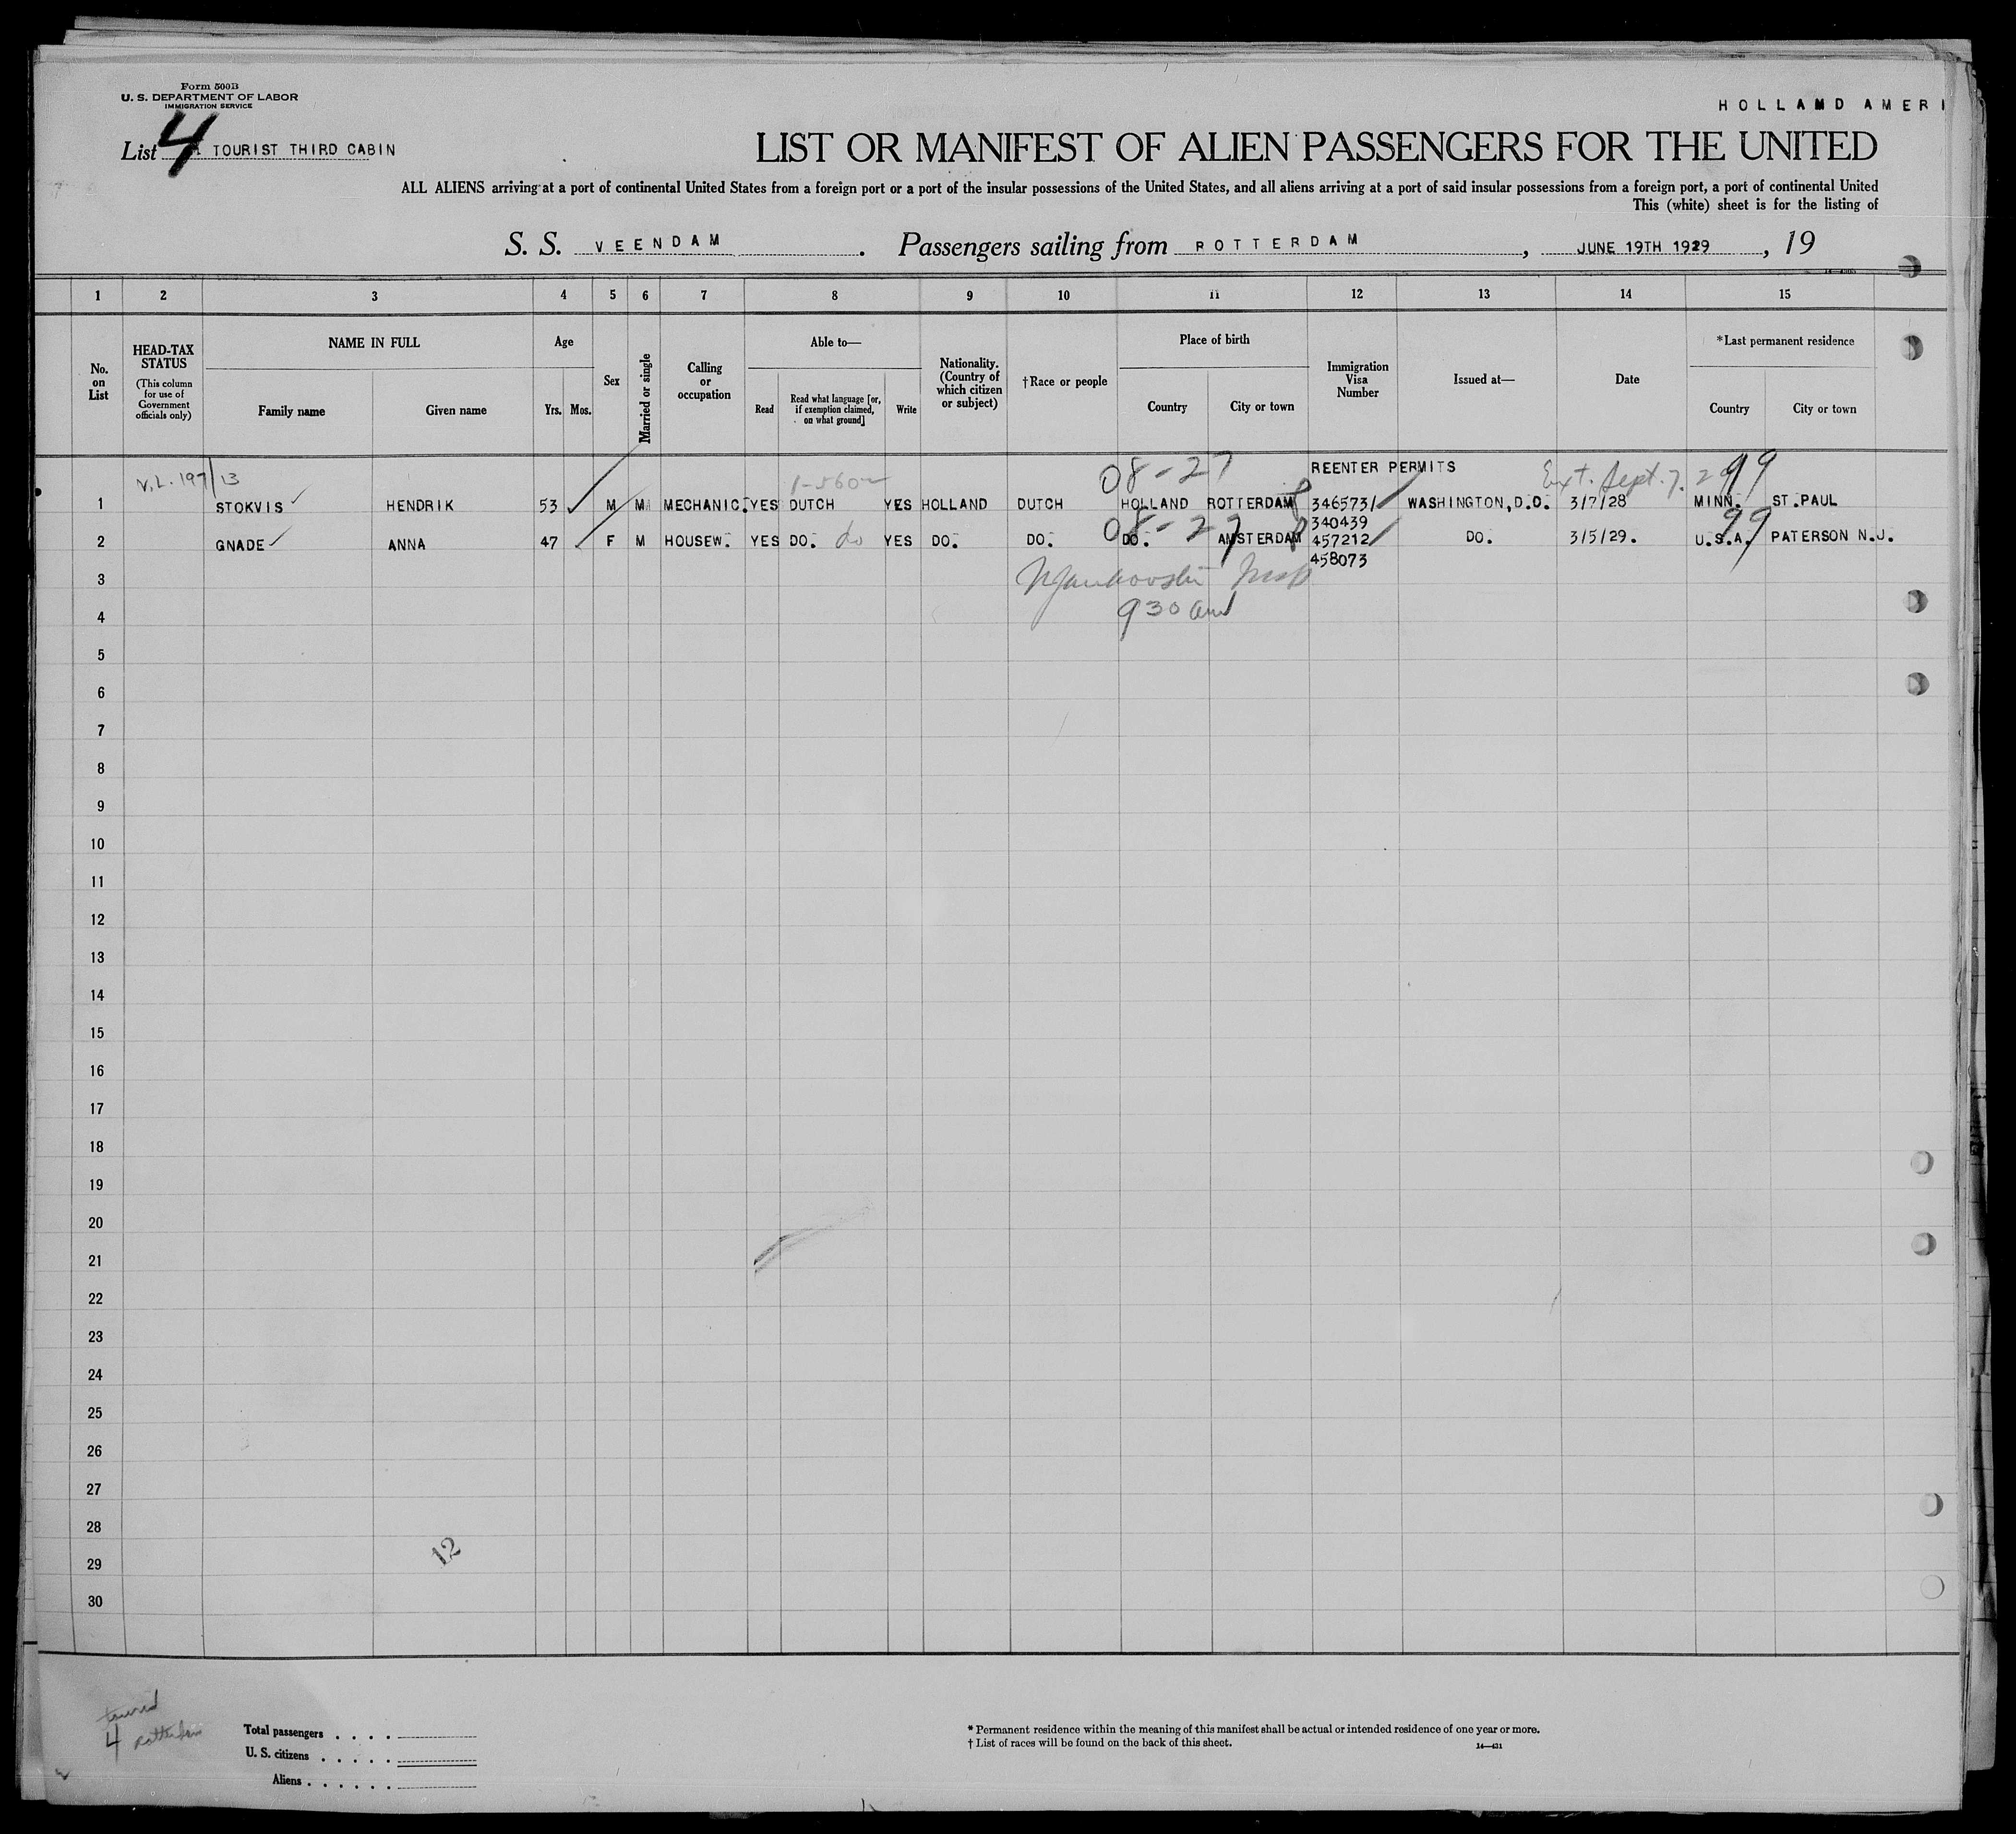 Form 500B
U. S. DEPARTMENT OF LABOR
IMMIGRATION SERVICE
HOLLAMD AMERI
List 4 TOURIST THIRD CABIN
LIST OR MANIFEST OF ALIEN PASSENGERS FOR THE UNITED
ALL ALIENS arriving at a port of continental United States from a foreign port or a port of the insular possessions of the United States, and all aliens arriving at a port of said insular possessions from a foreign port, a port of continental United
This (white) sheet is for the listing of
S. S. VEENDAM. Passengers sailing from ROTTERDAM, JUNE 19TH 1929, 19
1 2 3 4 5 6 7 8 9 10 11 12 13 14 15
No. on List
HEAD-TAX STATUS (This column for use of Government officials only)
NAME IN FULL
Family name Given name
Age
Yrs. Mos.
Sex
Married or single
Calling or occupation
Able to—
Read
Read what language [or, if exemption claimed, on what ground]
Write
Nationality. (Country of which citizen or subject)
†Race or people
Place of birth
Country City or town
Immigration Visa Number
Issued at—
Date
*Last permanent residence
Country City or town
V.L. 197/13 1-5602 08-27 REENTER PERMITS Ext. Sept. 7. 29 99
1 STOKVIS HENDRIK 53 M M MECHANIC. YES DUTCH YES HOLLAND DUTCH HOLLAND ROTTERDAM 346573/ WASHINGTON,D.D. 3/7/28 MINN. ST.PAUL
340439
08-27 99
2 GNADE ANNA 47 F M HOUSEW. YES DO. do YES DO. DO. DO. AMSTERDAM 457212 DO. 3/5/29. U.S.A. PATERSON N.J.
458073
3 Insp
4 930 am
5
6
7
8
9
10
11
12
13
14
15
16
17
18
19
20
21
22
23
24
25
26
27
28
12
29
30
4 Rotterdam
Total passengers . . . .
U. S. citizens . . . . .
Aliens . . . . . .
* Permanent residence within the meaning of this manifest shall be actual or intended residence of one year or more.
† List of races will be found on the back of this sheet.
14—431